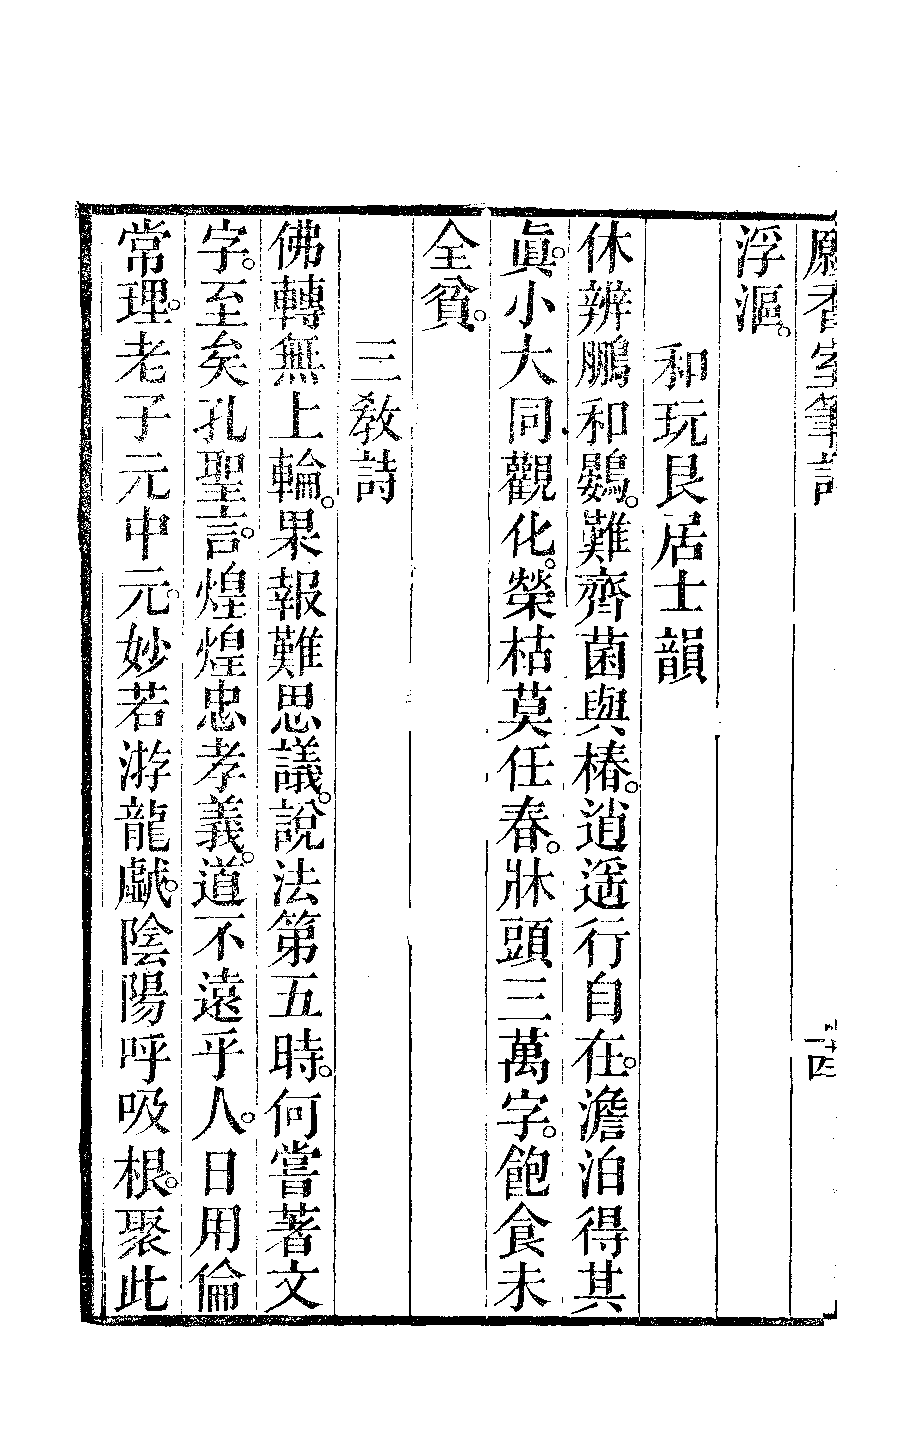 願香室筆記
十四
浮漚。
和玩艮居士韻
休辨鵬和鷃。難齊菌與椿。逍遥行自在。澹泊得其
眞。小大同觀化。榮枯莫任春。牀頭三萬字。飽食未
全貧。
三敎詩
佛轉無上輪。果報難思議。說法第五時。何嘗著文
字。至矣孔聖言。煌煌忠孝義。道不遠乎人。日用倫
常理。老子元中元。妙若游龍戲。陰陽呼吸根。聚此